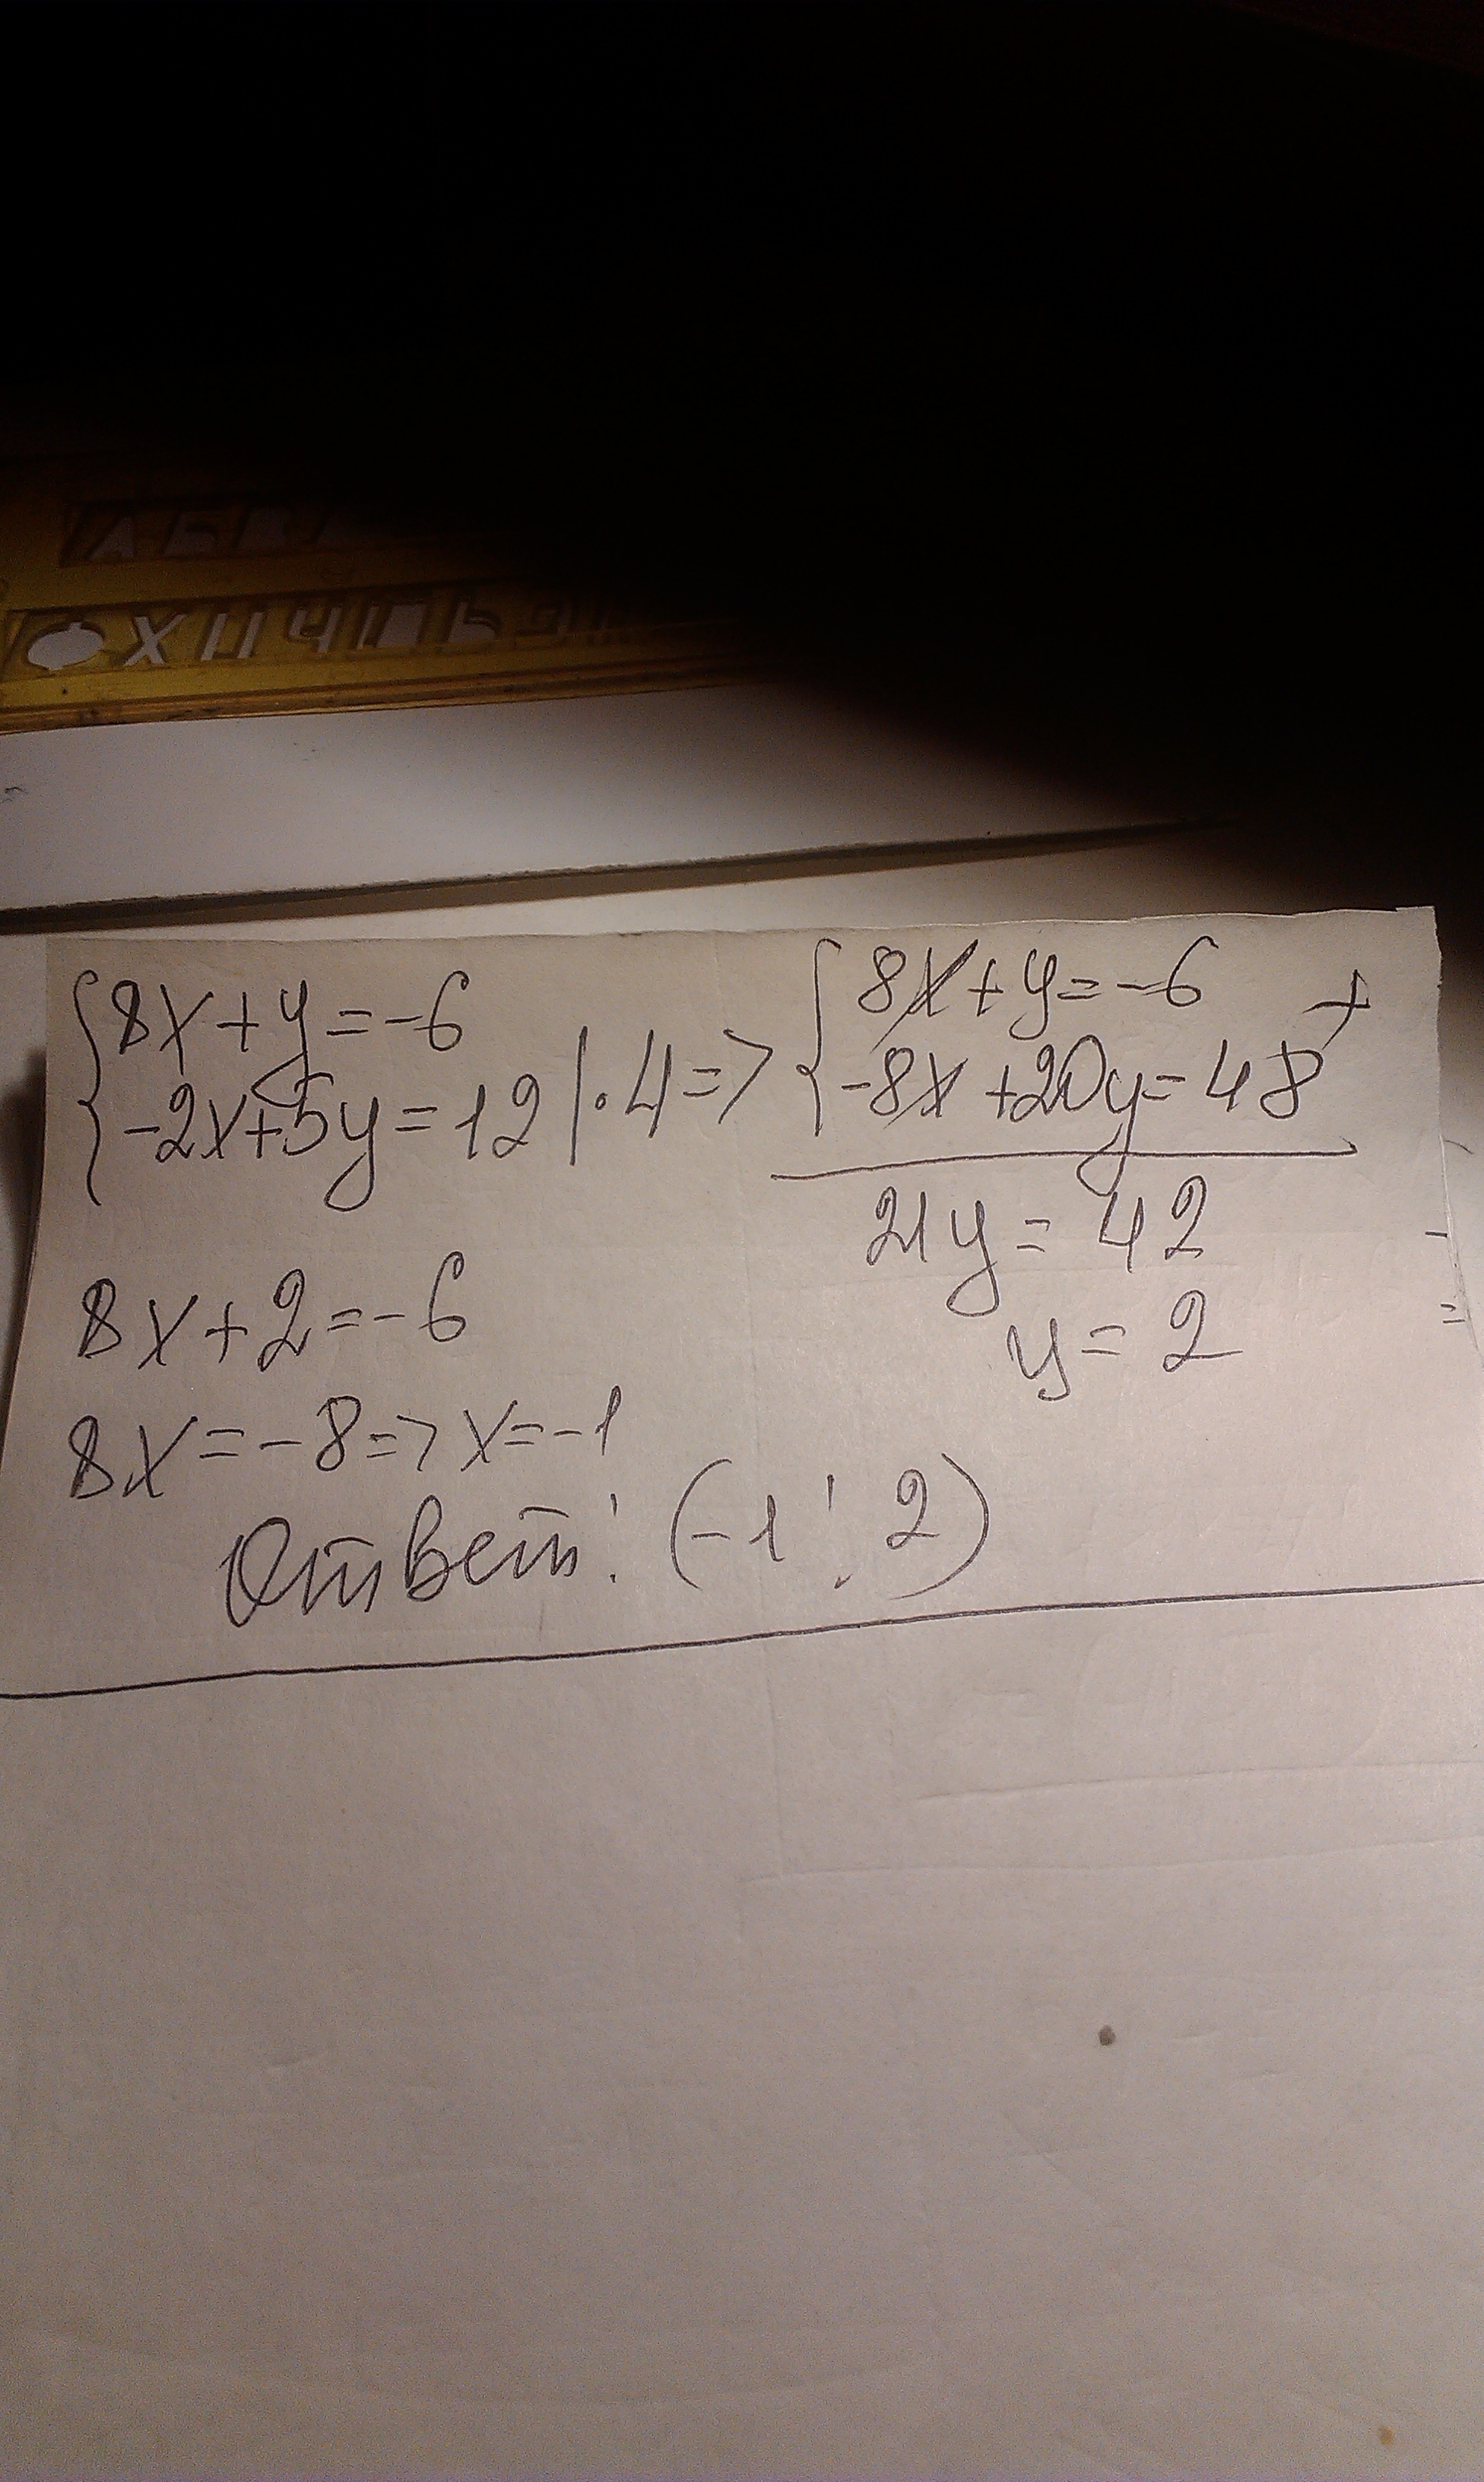 Ф Х Ц Ч
8x+y=-6
-2x+5y=12 |·4=>
8x+y=-6 +
-8x+20y=48
21y=42
y=2
8x+2=-6
8x=-8=>x=-1
Ответ: (-1; 2)